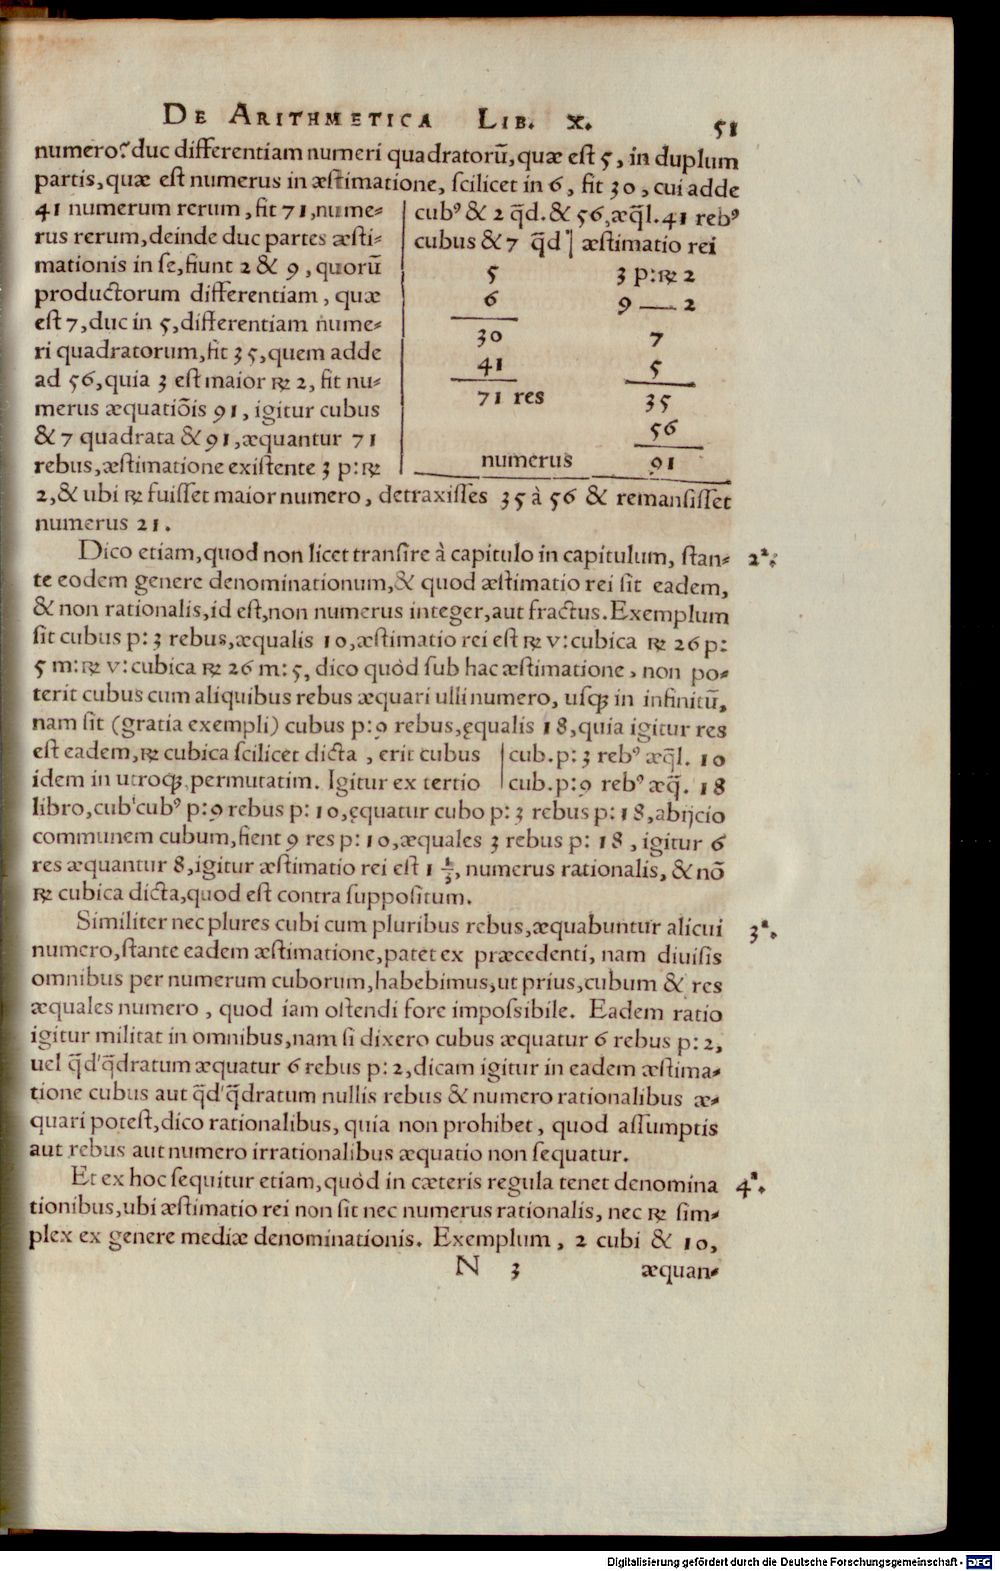 DE ARITHMETICA LIB. X. 51
numero? duc differentiam numeri quadratorũ, quæ est 5, in duplum
partis, quæ est numerus in æstimatione, scilicet in 6, fit 30, cui adde
41 numerum rerum, fit 71, nume-
rus rerum, deinde duc partes æsti-
mationis in se, fiunt 2 & 9, quorũ
productorum differentiam, quæ
est 7, duc in 5, differentiam nume-
ri quadratorum, fit 35, quem adde
ad 56, quia 3 est maior ℞ 2, fit nu-
merus æquatiõis 91, igitur cubus
& 7 quadrata & 91, æquantur 71
rebus, æstimatione existente 3 p: ℞
cubꝰ & 2 q̃d. & 56, æq̃l. 41 rebꝰ
cubus & 7 q̃d | æstimatio rei
5 3 p: ℞ 2
6 9 — 2
30 7
41 5
71 res 35
56
numerus 91
2, & ubi ℞ fuisset maior numero, detraxisses 35 à 56 & remansisset
numerus 21.
Dico etiam, quod non licet transire à capitulo in capitulum, stan- 2ª.
te eodem genere denominationum, & quod æstimatio rei sit eadem,
& non rationalis, id est, non numerus integer, aut fractus. Exemplum
sit cubus p: 3 rebus, æqualis 10, æstimatio rei est ℞ v: cubica ℞ 26 p:
5 m: ℞ v: cubica ℞ 26 m: 5, dico quòd sub hac æstimatione, non po-
terit cubus cum aliquibus rebus æquari ulli numero, usqꝫ in infinitũ,
nam sit (gratia exempli) cubus p: 9 rebus, ęqualis 18, quia igitur res
est eadem, ℞ cubica scilicet dicta, erit cubus
idem in utroqꝫ permutatim. Igitur ex tertio
cub. p: 3 rebꝰ æq̃l. 10
cub. p: 9 rebꝰ æq̃. 18
libro, cub' cubꝰ p: 9 rebus p: 10, ęquatur cubo p: 3 rebus p: 18, abijcio
communem cubum, fient 9 res p: 10, æquales 3 rebus p: 18, igitur 6
res æquantur 8, igitur æstimatio rei est 1 1/3, numerus rationalis, & nõ
℞ cubica dicta, quod est contra suppositum.
Similiter nec plures cubi cum pluribus rebus, æquabuntur alicui 3ª.
numero, stante eadem æstimatione, patet ex præcedenti, nam diuisis
omnibus per numerum cuborum, habebimus, ut prius, cubum & res
æquales numero, quod iam ostendi fore impossibile. Eadem ratio
igitur militat in omnibus, nam si dixero cubus æquatur 6 rebus p: 2,
uel q̃d' q̃dratum æquatur 6 rebus p: 2, dicam igitur in eadem æstima-
tione cubus aut q̃d' q̃dratum nullis rebus & numero rationalibus æ-
quari potest, dico rationalibus, quia non prohibet, quod assumptis
aut rebus aut numero irrationalibus æquatio non sequatur.
Et ex hoc sequitur etiam, quòd in cæteris regula tenet denomina 4ª.
tionibus, ubi æstimatio rei non sit nec numerus rationalis, nec ℞ sim-
plex ex genere mediæ denominationis. Exemplum, 2 cubi & 10,
N 3 æquan-
Digitalisierung gefördert durch die Deutsche Forschungsgemeinschaft - DFG